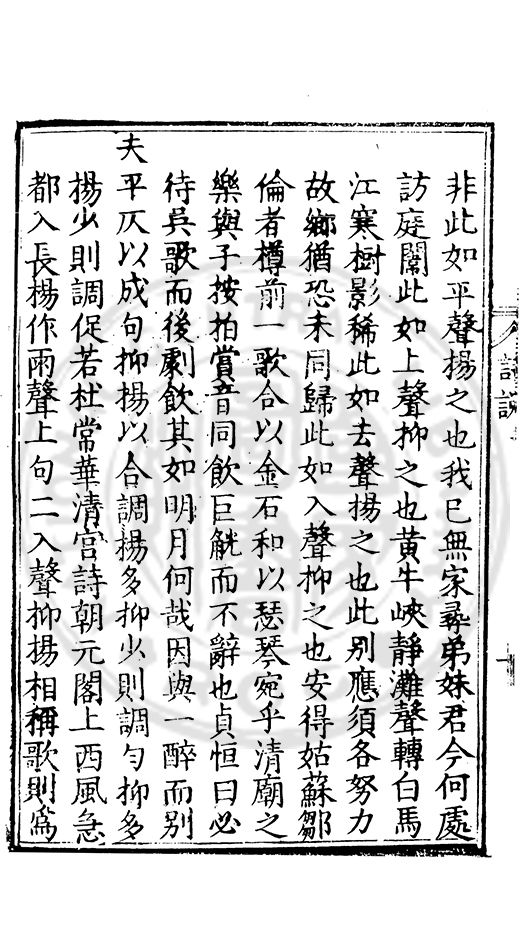 非此如平聲揚之也我已無家尋弟妹君今何處
訪庭闈此如上聲抑之也黃牛峽靜灘聲轉白馬
江寒樹影稀此如去聲揚之也此別應須各努力
故鄉猶恐未同歸此如入聲抑之也安得姑蘇鄒
倫者樽前一歌合以金石和以瑟琴宛乎清廟之
樂與子按拍賞音同飲巨觥而不辭也貞恒曰必
待吳歌而後劇飲其如明月何哉因與一醉而別
夫平仄以成句抑揚以合調揚多抑少則調勻抑多
揚少則調促若杜常華清宮詩朝元閣上西風急
都入長楊作雨聲上句二入聲抑揚相稱歌則爲